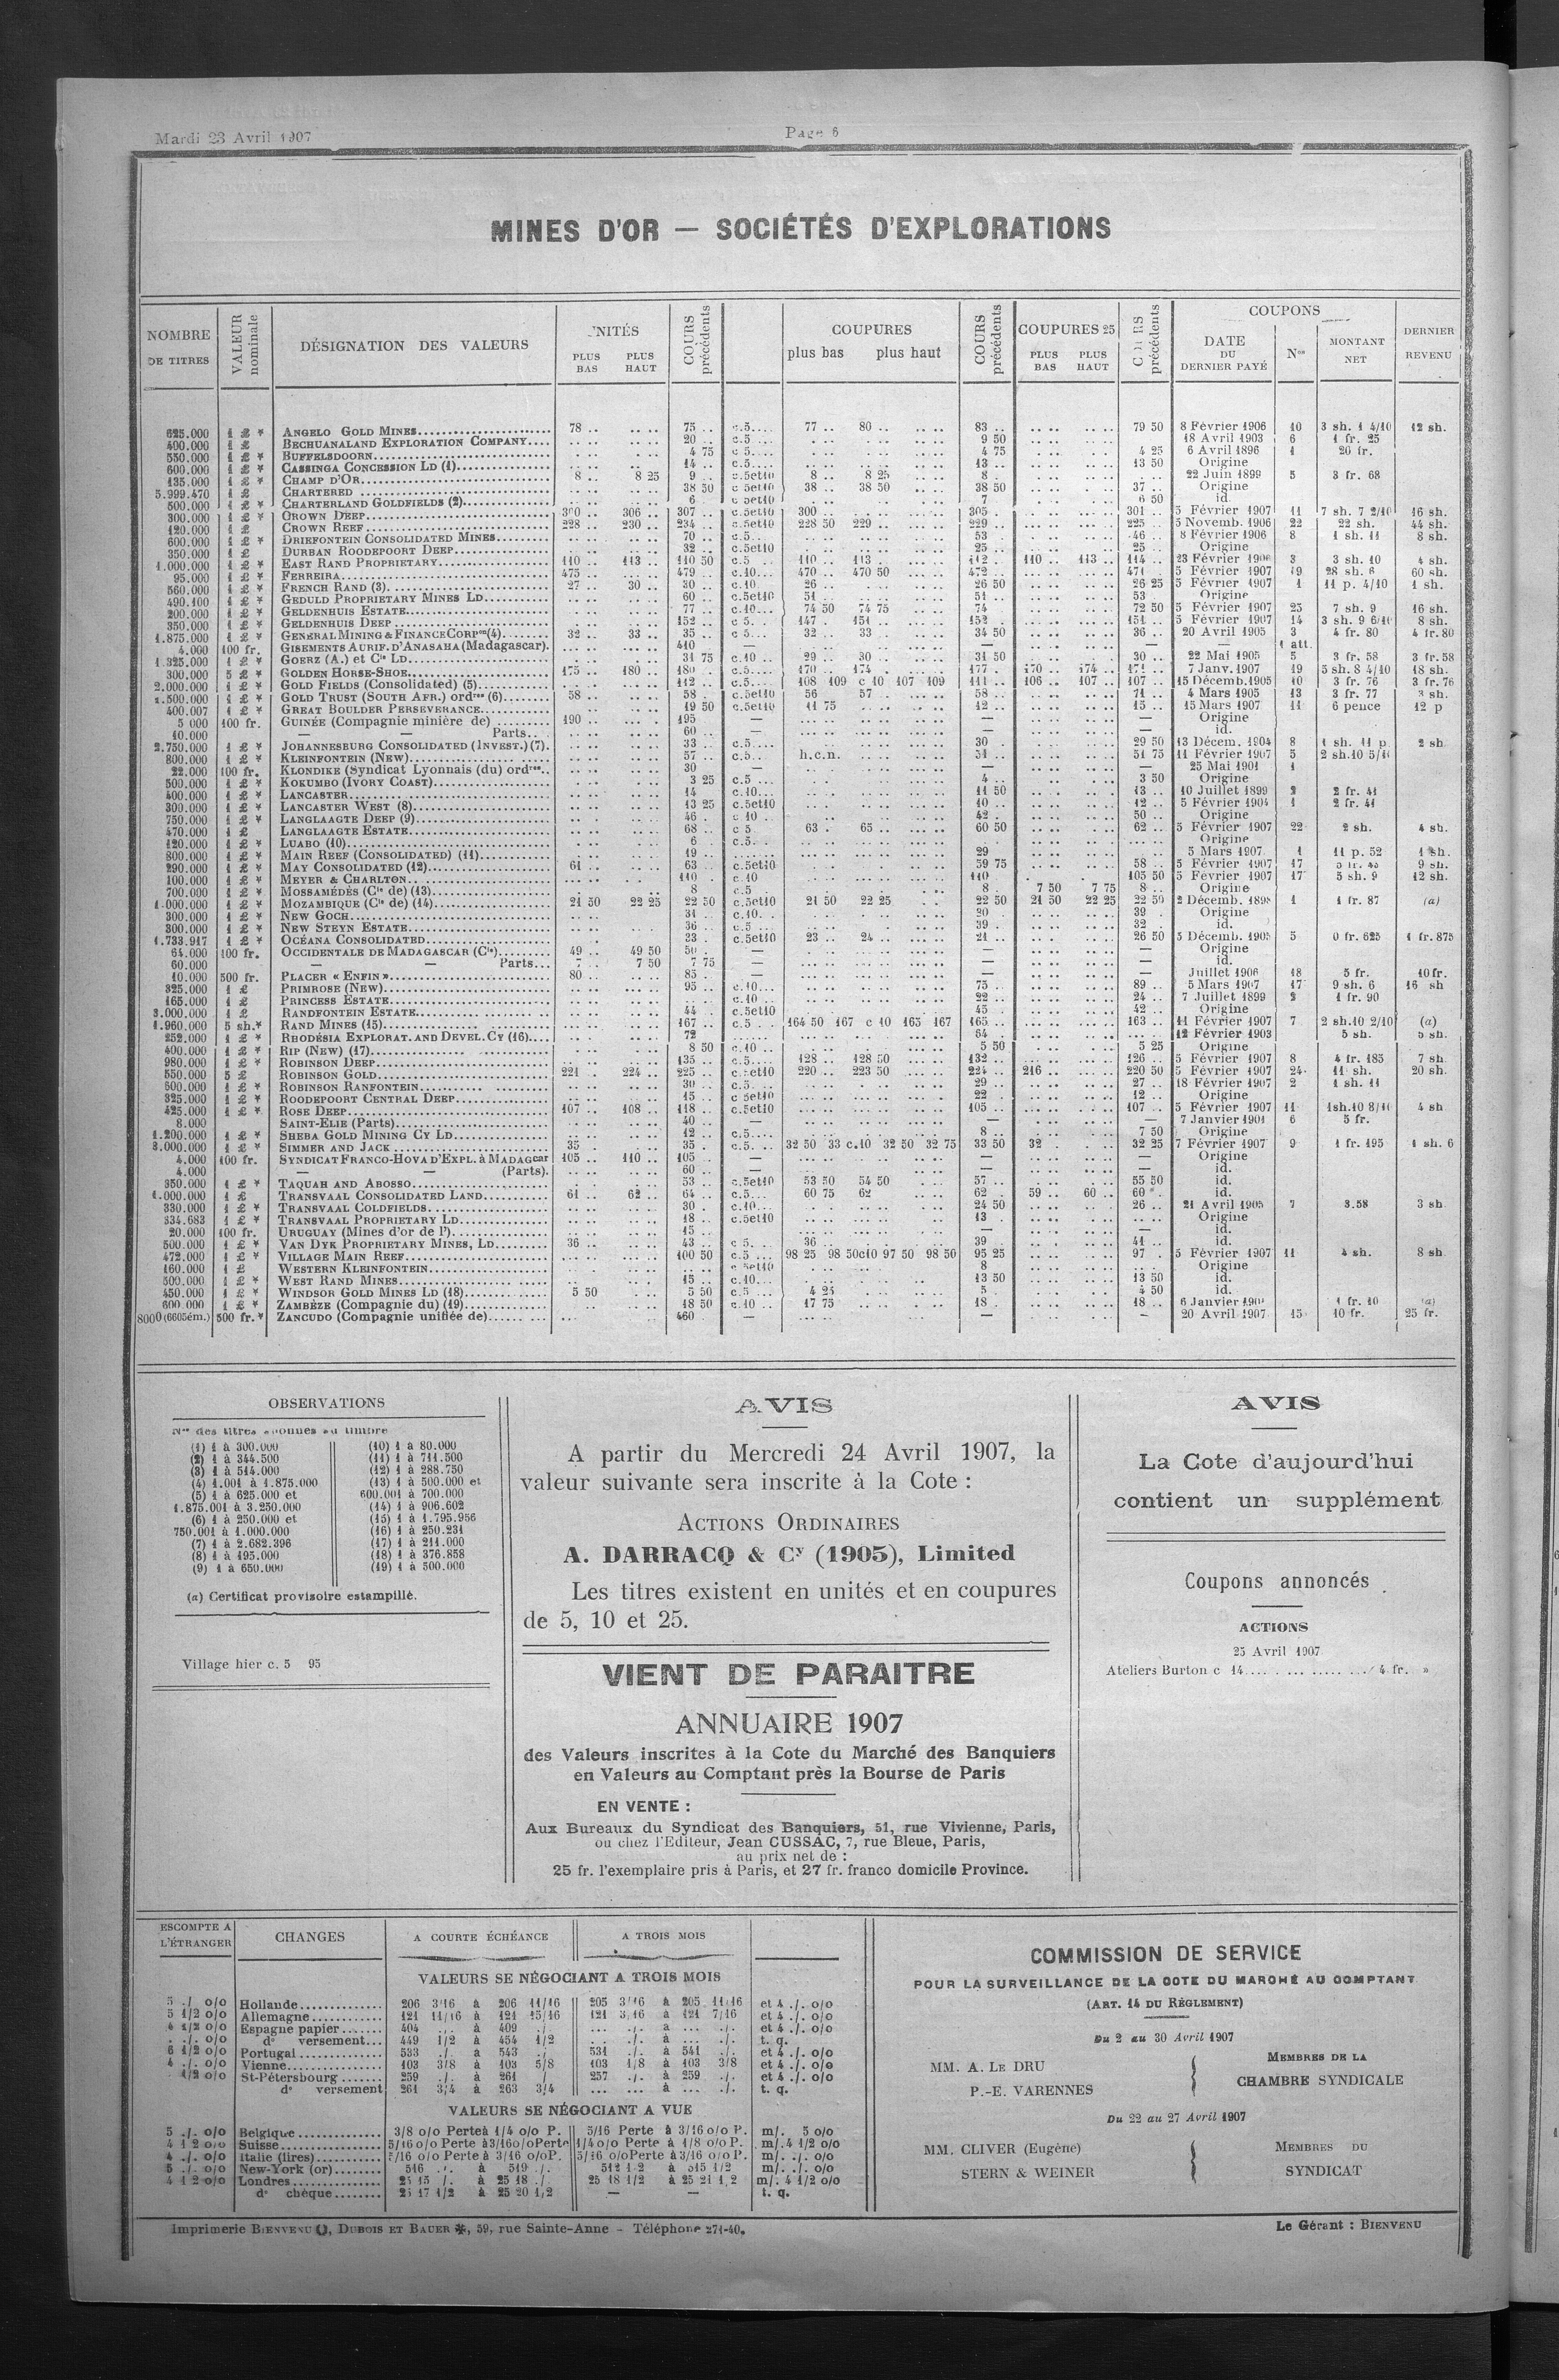 Mardi 23 Avril 1907
Page 6
MINES D'OR — SOCIÉTÉS D'EXPLORATIONS
NOMBRE DE TITRES
VALEUR nominale
DÉSIGNATION DES VALEURS
NITÉS
PLUS BAS PLUS HAUT
COURS précédents
COUPURES
plus bas plus haut
COURS précédents
COUPURES 25
PLUS BAS PLUS HAUT
précédents
COUPONS
DATE DU DERNIER PAYÉ
Nos
MONTANT NET
DERNIER REVENU
625.000 1 £ * ANGELO GOLD MINES 78 .. 75 .. c.5 77 .. 80 .. 83 .. 79 50 8 Février 1906 10 3 sh. 1 4/10 12 sh.
400.000 1 £ BECHUANALAND EXPLORATION COMPANY 20 .. c.5 9 50 18 Avril 1903 6 1 fr. 25
550.000 1 £ * BUFFELSDOORN 4 75 c 5 4 75 4 25 6 Avril 1896 1 20 fr.
600.000 1 £ * CASSINGA CONCESSION LD (1) 14 .. c.5 13 .. 13 50 Origine
135.000 1 £ * CHAMP D'OR 8 .. 8 25 9 .. c.5et10 8 .. 8 25 8 . 22 Juin 1899 5 3 fr. 68
5.999.470 1 £ CHARTERED 38 50 c 5et10 38 .. 38 50 38 50 37 .. Origine
500.000 1 £ * CHARTERLAND GOLDFIELDS (2) 6 c 5et10 7 6 50 id.
300.000 1 £ * CROWN DEEP 300 .. 306 .. 307 .. c.5et10 300 .. 305 . 301 .. 5 Février 1907 11 7 sh. 7 2/10 16 sh.
120.000 1 £ CROWN REEF 228 .. 230 .. 234 .. c.5et10 228 50 229 .. 229 .. 225 .. 5 Novemb. 1906 22 22 sh. 44 sh.
600.000 1 £ * DRIEFONTEIN CONSOLIDATED MINES 70 .. c.5 53 . 46 .. 8 Février 1906 8 1 sh. 11 8 sh.
350.000 1 £ DURBAN ROODEPOORT DEEP 32 .. c.5et10 25 .. 25 .. Origine
1.000.000 1 £ * EAST RAND PROPRIETARY 110 .. 113 .. 110 50 c.5 110 .. 113 . 112 .. 110 .. 113 .. 114 .. 23 Février 1906 3 3 sh. 10 4 sh.
95.000 1 £ * FERREIRA 475 .. 479 .. c.10 470 .. 470 50 472 .. 471 .. 5 Février 1907 19 28 sh. 6 60 sh.
560.000 1 £ * FRENCH RAND (3) 27 . 30 .. 30 .. c.10 26 .. 26 50 26 25 5 Février 1907 1 11 p. 4/10 1 sh.
490.100 1 £ * GEDULD PROPRIETARY MINES LD 60 .. c.5et10 51 .. 51 .. 53 . Origine
200.000 1 £ * GELDENHUIS ESTATE 77 .. c.10 74 50 74 75 74 . 72 50 5 Février 1907 23 7 sh. 9 16 sh.
350.000 1 £ * GELDENHUIS DEEP 152 .. c 5 147 . 151 .. 152 . 151 .. 5 Février 1907 14 3 sh. 9 6/10 8 sh.
1.875.000 1 £ * GENERAL MINING & FINANCE CORPon (4) 32 .. 33 .. 35 .. c 5 32 .. 33 .. 34 50 36 .. 20 Avril 1905 3 4 fr. 80 4 fr. 80
4.000 100 fr. GISEMENTS AURIF. D'ANASAHA (Madagascar). 410 — — — 1 att.
1.325.000 1 £ * GOERZ (A.) et Cie LD 31 75 c.10 29 .. 30 .. 31 50 30 .. 22 Mai 1905 5 3 fr. 58 3 fr. 58
300.000 5 £ * GOLDEN HORSE-SHOE 175 .. 180 .. 180 .. c.5 170 .. 174 . 177 .. 170 .. 174 .. 171 .. 7 Janv. 1907 19 5 sh. 8 4/10 18 sh.
2.000.000 1 £ * GOLD FIELDS (Consolidated) (5) 112 .. c.5 108 109 c 10 107 109 111 .. 106 .. 107 .. 107 .. 15 Décemb. 1905 10 3 fr. 76 3 fr. 76
1.500.000 1 £ * GOLD TRUST (SOUTH AFR.) ordres (6) 58 .. 58 . c.5et10 56 57 .. 58 .. 71 .. 4 Mars 1905 13 3 fr. 77 3 sh.
400.007 1 £ * GREAT BOULDER PERSEVERANCE 19 50 c.5et10 11 75 12 .. 15 .. 15 Mars 1907 11 6 pence 12 p
5 000 100 fr. GUINÉE (Compagnie minière de) 190 .. 195 — — — Origine
10.000 — — Parts 60 .. — — — id.
2.750.000 1 £ * JOHANNESBURG CONSOLIDATED (INVEST.) (7). 33 .. c.5 30 . 29 50 13 Décem. 1904 8 1 sh. 11 p 2 sh
800.000 1 £ * KLEINFONTEIN (NEW) 57 .. c.5 h.c.n. 51 .. 51 75 11 Février 1907 5 2 sh.10 5/10
22.000 100 fr. KLONDIKE (Syndicat Lyonnais (du) ordres 30 — — — 25 Mai 1901 1
500.000 1 £ * KOKUMBO (IVORY COAST) 3 25 c.5 4 .. 3 50 Origine
400.000 1 £ * LANCASTER 14 c.10 11 50 13 .. 10 Juillet 1899 2 2 fr. 41
300.000 1 £ * LANCASTER WEST (8) 13 25 c.5et10 10 .. 12 .. 5 Février 1904 1 2 fr. 41
750.000 1 £ * LANGLAAGTE DEEP (9) 46 . c 10 42 . 50 .. Origine
470.000 1 £ LANGLAAGTE ESTATE 68 .. c 5 63 . 65 .. 60 50 62 .. 5 Février 1907 22 2 sh. 4 sh.
120.000 1 £ * LUABO (10) 6 c.5 Origine
800.000 1 £ * MAIN REEF (CONSOLIDATED) (11) 19 .. 29 5 Mars 1907 1 11 p. 52 1 sh.
290.000 1 £ * MAY CONSOLIDATED (12) 61 .. 63 . c.5et10 59 75 58 .. 5 Février 1907 17 9 sh.
100.000 1 £ * MEYER & CHARLTON 110 . c.10 110 105 50 5 Février 1907 17 5 sh. 9 12 sh.
700.000 1 £ * MOSSAMÉDÈS (Cie de) (13) 8 c.5 8 . 7 50 7 75 8 .. Origine
1.000.000 1 £ * MOZAMBIQUE (Cie de) (14) 21 50 22 25 22 50 c.5et10 21 50 22 25 22 50 21 50 22 25 22 50 2 Décemb. 1898 1 1 fr. 87 (a)
300.000 1 £ * NEW GOCH 31 .. c.10 30 . 39 . Origine
300.000 1 £ * NEW STEYN ESTATE 36 .. c.5 39 . 32 . id.
1.733.917 1 £ * OCÉANA CONSOLIDATED 23 . c.5et10 23 .. 24 .. 21 .. 26 50 5 Décemb. 1905 5 0 fr. 625 1 fr. 875
64.000 100 fr. OCCIDENTALE DE MADAGASCAR (Cie) 49 .. 49 50 50 . — — — Origine
60.000 — — Parts 7 .. 7 50 7 75 — — — id.
10.000 500 fr. PLACER « ENFIN » 80 .. 85 . — — — Juillet 1906 18 5 fr. 10 fr.
325.000 1 £ PRIMROSE (NEW) 95 .. c.10 75 .. 89 .. 5 Mars 1907 17 9 sh. 6 16 sh
165.000 1 £ PRINCESS ESTATE c.10 22 .. 24 .. 7 Juillet 1899 2 1 fr. 90
3.000.000 1 £ RANDFONTEIN ESTATE 44 . c.5et10 45 . 42 .. Origine
1.960.000 5 sh.* RAND MINES (15) 167 .. c.5 164 50 167 c 10 165 167 165 .. 163 .. 11 Février 1907 7 2 sh.10 2/10 (a)
252.000 1 £ * RHODÉSIA EXPLORAT. AND DEVEL. CY (16) 72 64 12 Février 1903 5 sh. 5 sh.
400.000 1 £ * RIP (NEW) (17) 8 50 c.10 5 50 5 25 Origine
980.000 1 £ * ROBINSON DEEP 135 .. c.5 128 .. 128 50 132 .. 126 .. 5 Février 1907 8 4 fr. 185 7 sh
550.000 5 £ ROBINSON GOLD 221 .. 224 .. 225 .. c.5et10 220 .. 223 50 224 .. 216 .. 220 50 5 Février 1907 24 11 sh. 20 sh.
500.000 1 £ * ROBINSON RANFONTEIN 30 .. c.5 29 .. 27 .. 18 Février 1907 2 1 sh. 11
325.000 1 £ * ROODEPOORT CENTRAL DEEP 15 .. c 5et10 22 . 12 .. Origine
425.000 1 £ * ROSE DEEP 107 .. 108 .. 118 .. c.5et10 105 .. 107 .. 5 Février 1907 11 1sh.10 8/10 4 sh
8.000 SAINT-ELIE (Parts) 40 .. — — — 7 Janvier 1901 6 5 fr.
1.200.000 1 £ * SHEBA GOLD MINING CY LD 12 .. c.5 8 .. 7 50 Origine
3.000.000 1 £ SIMMER AND JACK 35 35 . c.5 32 50 33 c.10 32 50 32 75 33 50 32 32 25 7 Février 1907 9 1 fr. 195 1 sh. 6
4.000 100 fr. SYNDICAT FRANCO-HOVA D'EXPL. à MADAGcar 105 .. 110 .. 105 .. — — — Origine
4.000 — — (Parts). 60 .. — — — id.
350.000 1 £ * TAQUAH AND ABOSSO 53 .. c.5et10 53 50 54 50 57 .. 55 50 id.
1.000.000 1 £ TRANSVAAL CONSOLIDATED LAND 61 .. 62 .. 64 .. c.5 60 75 62 62 . 59 .. 60 .. 60 . id.
330.000 1 £ * TRANSVAAL COLDFIELDS 30 . c.10 24 50 26 .. 21 Avril 1905 7 3.58 3 sh
334.683 1 £ * TRANSVAAL PROPRIETARY LD 18 .. c.5et10 13 . Origine
20.000 100 fr. URUGUAY (Mines d'or de l') 15 .. — — — id.
500.000 1 £ * VAN DYK PROPRIETARY MINES, LD 36 .. 43 .. c 5 36 .. 39 . 41 .. id.
472.000 1 £ * VILLAGE MAIN REEF 100 50 c.5 98 25 98 50c10 97 50 98 50 95 25 97 . 5 Février 1907 11 4 sh. 8 sh
160.000 1 £ WESTERN KLEINFONTEIN c 5et10 8 Origine
500.000 1 £ * WEST RAND MINES 15 .. c.10 13 50 13 50 id.
450.000 1 £ * WINDSOR GOLD MINES LD (18) 5 50 5 50 c.5 4 25 5 . 4 50 id.
600.000 1 £ * ZAMBÈZE (Compagnie du) (19) 18 50 c.10 17 75 18 . 18 .. 6 Janvier 1 fr. 10 (a)
8000 (6605ém.) 500 fr.* ZANCUDO (Compagnie unifiée de) 460 — — — 20 Avril 1907 15 10 fr. 25 fr.
OBSERVATIONS
Nos des titres abonnés au timbre
(1) 1 à 300.000
(2) 1 à 344.500
(3) 1 à 514.000
(4) 1.001 à 1.875.000
(5) 1 à 625.000 et
1.875.001 à 3.250.000
(6) 1 à 250.000 et
750.001 à 1.000.000
(7) 1 à 2.682.396
(8) 1 à 195.000
(9) 1 à 650.000
(10) 1 à 80.000
(11) 1 à 711.500
(12) 1 à 288.750
(13) 1 à 500.000 et
600.001 à 700.000
(14) 1 à 906.602
(15) 1 à 1.795.956
(16) 1 à 250.231
(17) 1 à 211.000
(18) 1 à 376.858
(19) 1 à 500.000
(a) Certificat provisoire estampillé.
Village hier c. 5 95
AVIS
A partir du Mercredi 24 Avril 1907, la
valeur suivante sera inscrite à la Cote :
ACTIONS ORDINAIRES
A. DARRACQ & Cy (1905), Limited
Les titres existent en unités et en coupures
de 5, 10 et 25.
VIENT DE PARAITRE
ANNUAIRE 1907
des Valeurs inscrites à la Cote du Marché des Banquiers
en Valeurs au Comptant près la Bourse de Paris
EN VENTE :
Aux Bureaux du Syndicat des Banquiers, 51, rue Vivienne, Paris,
ou chez l'Editeur, Jean CUSSAC, 7, rue Bleue, Paris,
au prix net de :
25 fr. l'exemplaire pris à Paris, et 27 fr. franco domicile Province.
AVIS
La Cote d'aujourd'hui
contient un supplément
Coupons annoncés
ACTIONS
25 Avril 1907
Ateliers Burton c 14 4 fr. »
ESCOMPTE A L'ÉTRANGER
CHANGES
A COURTE ÉCHÉANCE
A TROIS MOIS
VALEURS SE NÉGOCIANT A TROIS MOIS
5 ./. o/o Hollande 206 3/16 à 206 11/16 205 3/16 à 205 11/16 et 4 ./. o/o
5 1/2 o/o Allemagne 121 11/16 à 121 15/16 121 3/16 à 121 7/16 et 4 ./. o/o
4 1/2 o/o Espagne papier 404 à 409 ./. ... ./. à ... ./. et 4 ./. o/o
. ./. o/o do versement 449 1/2 à 454 1/2 ... ./. à ... ./. t. q.
6 1/2 o/o Portugal 533 ./. à 543 ./. 531 ./. à 541 ./. et 4 ./. o/o
4 ./. o/o Vienne 103 3/8 à 103 5/8 103 1/8 à 103 3/8 et 4 ./. o/o
1/2 o/o St-Pétersbourg 259 ./. à 261 / 257 ./. à 259 ./. et 4 ./. o/o
do versement 261 3/4 à 263 3/4 ... ... à ... ./. t. q.
VALEURS SE NÉGOCIANT A VUE
5 ./. o/o Belgique 3/8 o/o Perte à 1/4 o/o P. 5/16 Perte à 3/16 o/o P. m/. 5 o/o
4 1 2 o/o Suisse 5/16 o/o Perte à 3/16 o/o Perte 1/4 o/o Perte à 1/8 o/o P. m/. 4 1/2 o/o
4 ./. o/o Italie (lires) 5/16 o/o Perte à 3/16 o/o P. 5/16 o/o Perte à 3/16 o/o P. m/. ./. o/o
5 ./. o/o New-York (or) 516 ./. à 519 ./. 512 1 2 à 515 1/2 m/. ./. o/o
4 1 2 o/o Londres 25 15 /. à 25 18 ./. 25 18 1/2 à 25 21 1/2 m/. 4 1/2 o/o
do chèque 25 17 1/2 à 25 20 1/2 — — t. q.
COMMISSION DE SERVICE
POUR LA SURVEILLANCE DE LA COTE DU MARCHÉ AU COMPTANT
(ART. 14 DU RÈGLEMENT)
Du 2 au 30 Avril 1907
MM. A. LE DRU
P.-E. VARENNES
MEMBRES DE LA
CHAMBRE SYNDICALE
Du 22 au 27 Avril 1907
MM. CLIVER (Eugène)
STERN & WEINER
MEMBRES DU
SYNDICAT
Imprimerie BIENVENU, DUBOIS ET BAUER, 59, rue Sainte-Anne – Téléphone 271-40.
Le Gérant : BIENVENU